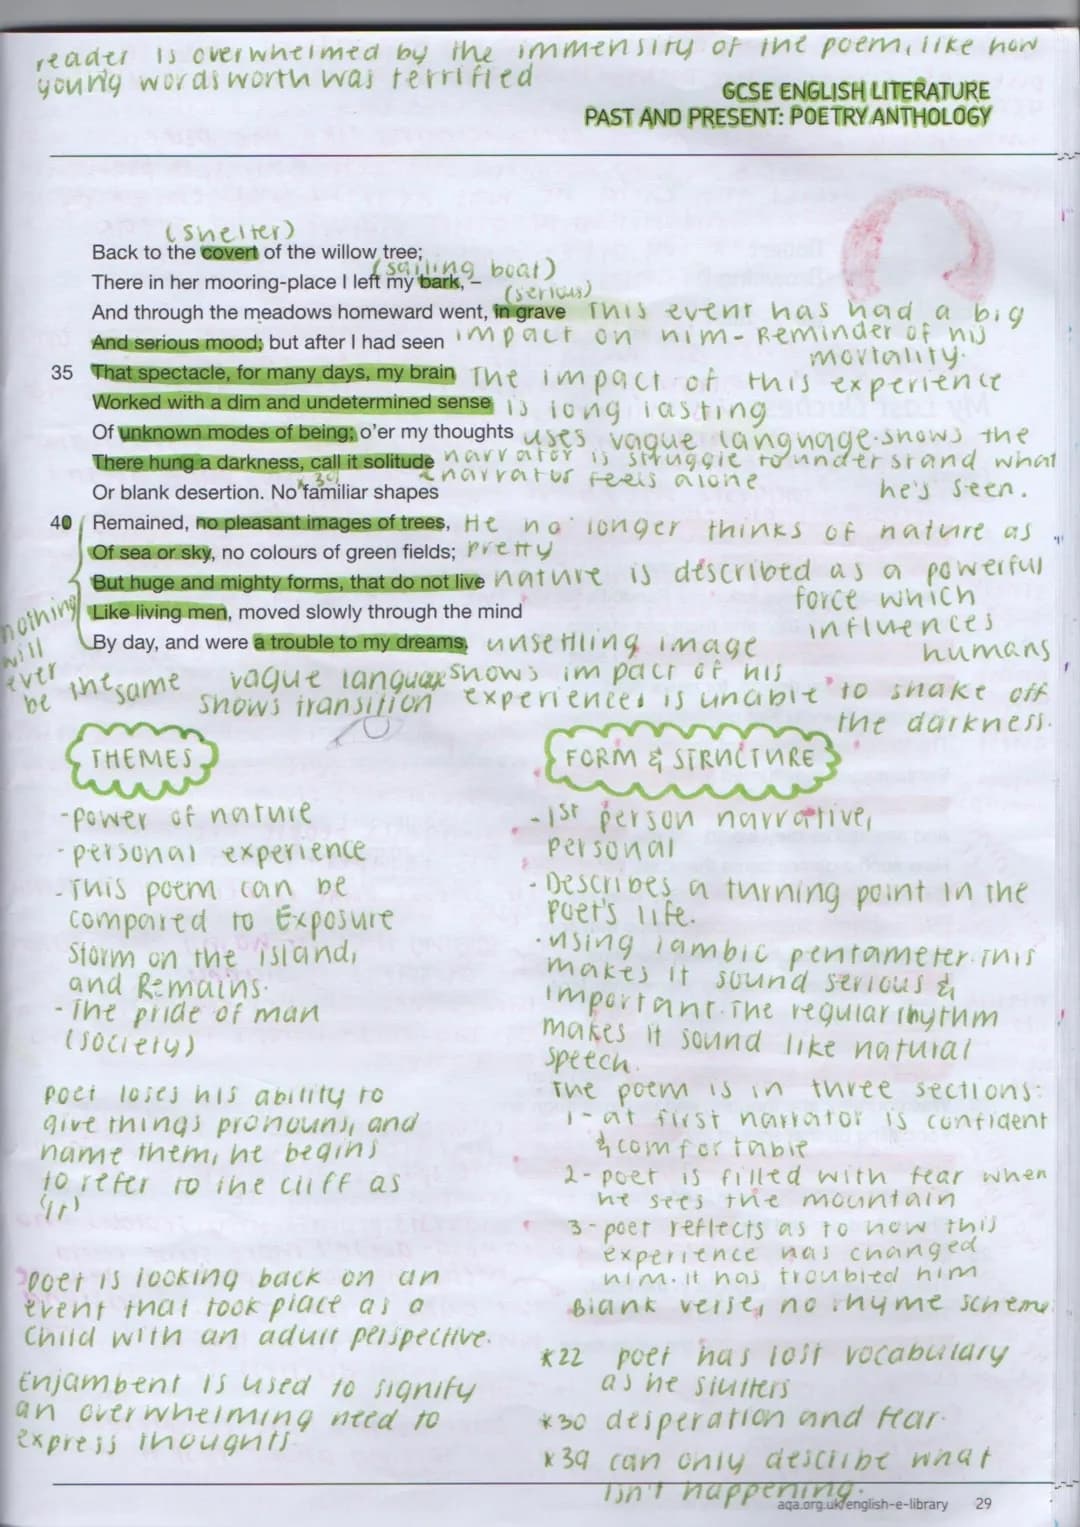 reader is overwhelmed by the immensity of the poem, like how
young wordsworth was terrified
GCSE ENGLISH LITERATURE
PAST AND PRESENT: POETRY ANTHOLOGY
(shelter)
Back to the covert of the willow tree;
(sailing boat)
There in her mooring-place I left my bark, –
(serious)
And through the meadows homeward went, in grave This event has had a big
And serious mood; but after I had seen impact on him- Reminder of his
mortality.
35 That spectacle, for many days, my brain The impact of this experience
Worked with a dim and undetermined sense is long lasting
Of unknown modes of being; o'er my thoughts uses vague language. shows the
There hung a darkness, call it solitude narrator is struggle to understand what
he's seen.
narrator feels alone
*39
Or blank desertion. No familiar shapes
40 Remained, no pleasant images of trees, He no longer thinks of nature as
Of sea or sky, no colours of green fields; pretty
But huge and mighty forms, that do not live nature is described as a powerful
Like living men, moved slowly through the mind force which
influences
humans
By day, and were a trouble to my dreams. unsettling image
nothing
will
ever
be the same
vague language shows impact of his
shows transition experiences is unable to shake off
the darkness.
THEMES
-power of nature
-personal experience
-This poem can be
compared to Exposure
Storm on the island,
and Remains.
-The pride of man
(society)
Poet loses his ability to
give things pronouns, and
name them, he begins
to refer to the cliff as
'it'
Poet is looking back on an
event that took place as a
child with an adult perspective.
Enjambent is used to signify
an overwhelming need to
express thoughts.
FORM & STRUCTURE
-1st person narrative,
personal
- Describes a turning point in the
poet's life.
-using iambic pentameter. This
makes it sound serious &
important. The regular rhythm
makes it sound like natural
speech.
The poem is in three sections:
1- at first narrator is confident
& comfortable
2- poet is filled with fear when
he sees the mountain
3- poet reflects as to how this
experience has changed
him. it has troubled him
Blank verse, no rhyme scheme.
*22 poet has lost vocabulary
as he stutters
*30 desperation and fear.
*39 can only describe what
isn't happening.
aqa.org.uk/english-e-library 29